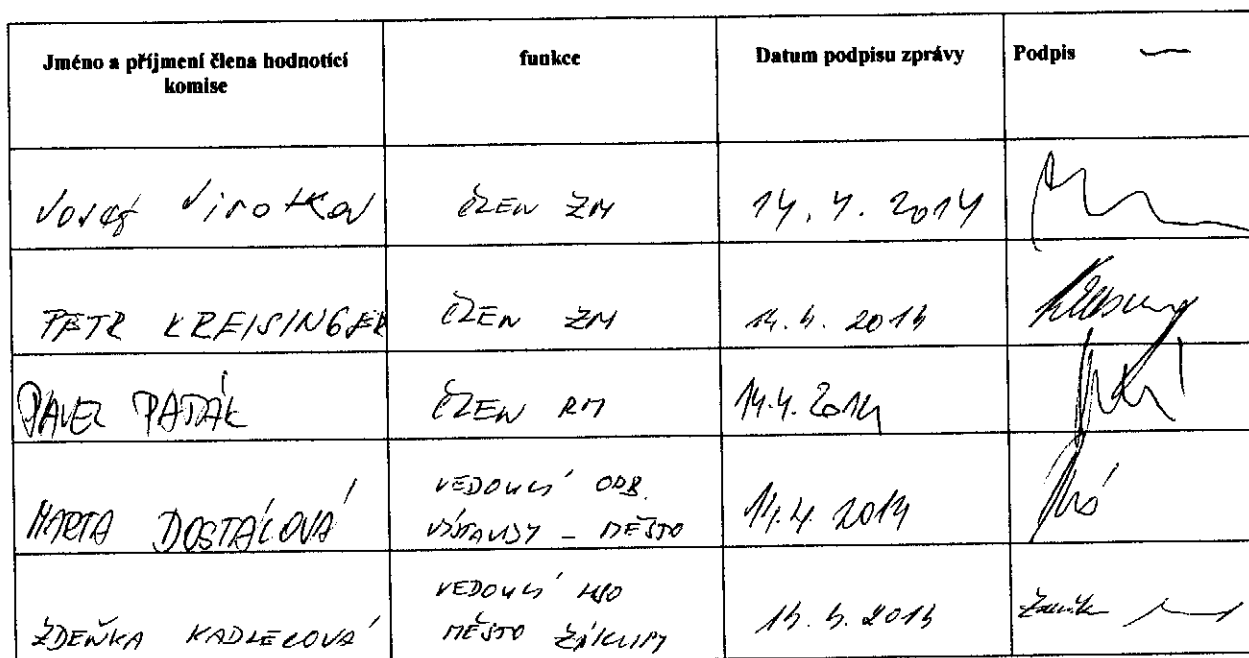 Jméno a příjmení člena hodnotící komise funkce Datum podpisu zprávy Podpis
ČLEN ZM 14. 4. 2014
PETR KREISINGER ČLEN ZM 14. 4. 2014
PAVEL PATÁK ČLEN RM 14.4. 2014
MARTA DOSTÁLOVÁ VEDOUCÍ ODB. VÝSTAVBY – MĚSTO 14.4. 2014
ZDEŇKA KADLECOVÁ VEDOUCÍ MĚSTO 14. 4. 2014